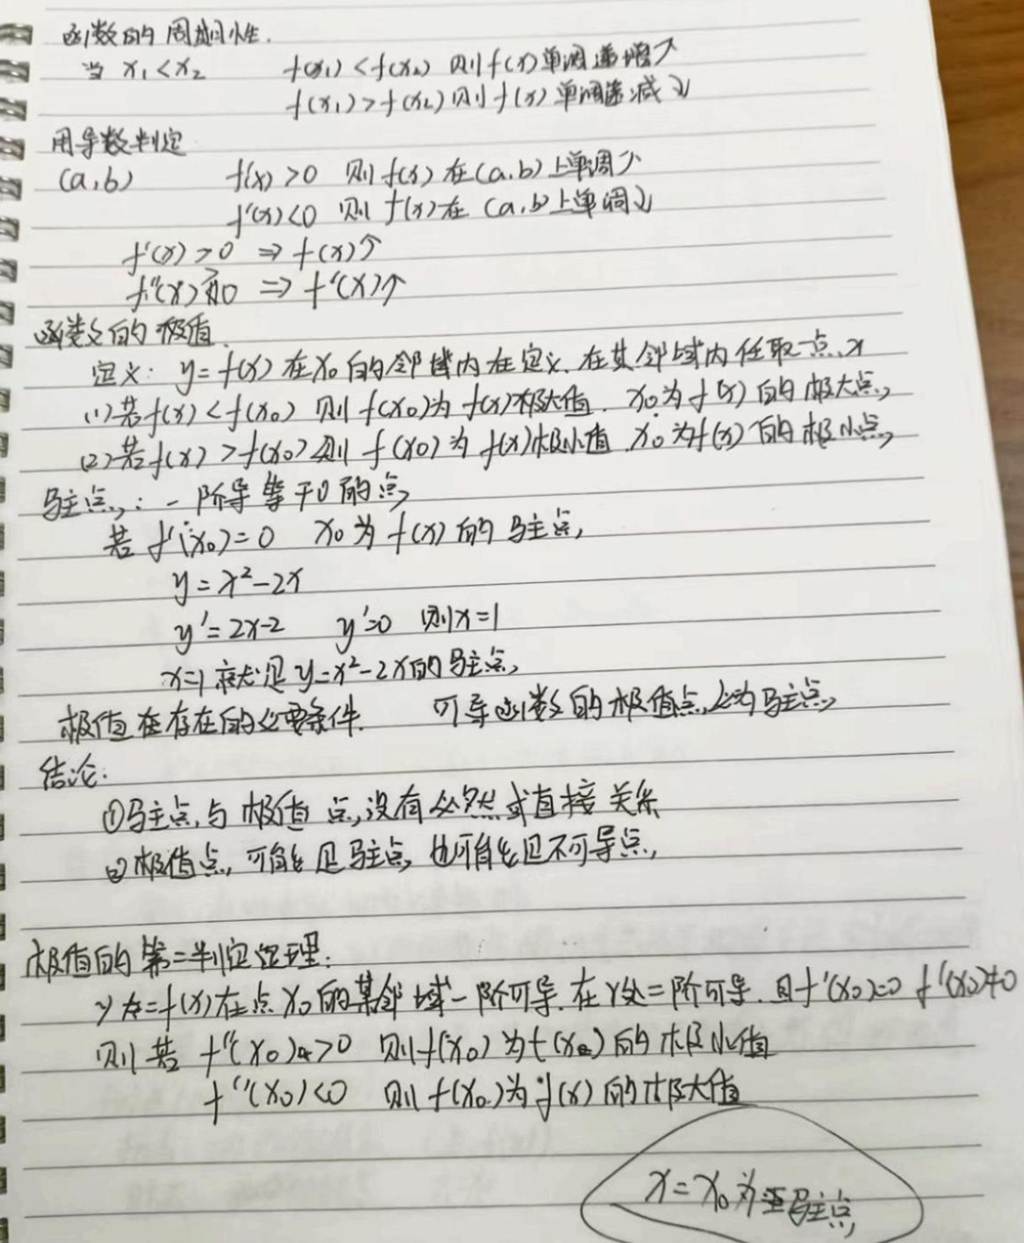 函数的周期性.
当 x₁<x₂ f(x₁)<f(x₂) 则f(x)单调递增↗
f(x₁)>f(x₂)则f(x)单调递减↘
用导数判定
(a,b) f(x)>0 则f(x)在(a,b)上单调↗
f'(x)<0 则 f(x)在(a,b)上单调↘
f'(x)>0 ⇒ f(x)↑
f''(x) 0 ⇒ f'(x)↑
函数的极值.
定义: y=f(x)在x₀的邻域内在定义.在其邻域内任取一点x
(1)若f(x)<f(x₀) 则f(x₀)为f(x)极大值. x₀为f(x)的极大点,
(2)若f(x)>f(x₀)则f(x₀)为f(x)极小值 x₀为f(x)的极小点,
驻点: 一阶导等于0的点,
若 f'(x₀)=0 x₀为f(x)的驻点,
y=x²-2x
y'=2x-2 y'=0 则x=1
x=1就是y=x²-2x的驻点,
极值在存在的必要条件. 可导函数的极值点必为驻点,
结论:
①驻点与极值点,没有必然或直接关系
②极值点,可能是驻点,也可能是不可导点,
极值的第二判定定理:
y =f(x)在点x₀的某邻域一阶可导.在 处二阶可导.且f'(x₀)=0 f''(x₀)≠0
则若 f''(x₀)>0 则f(x₀)为f(x)的极小值
f''(x₀)<0 则f(x₀)为f(x)的极大值
x=x₀为驻点